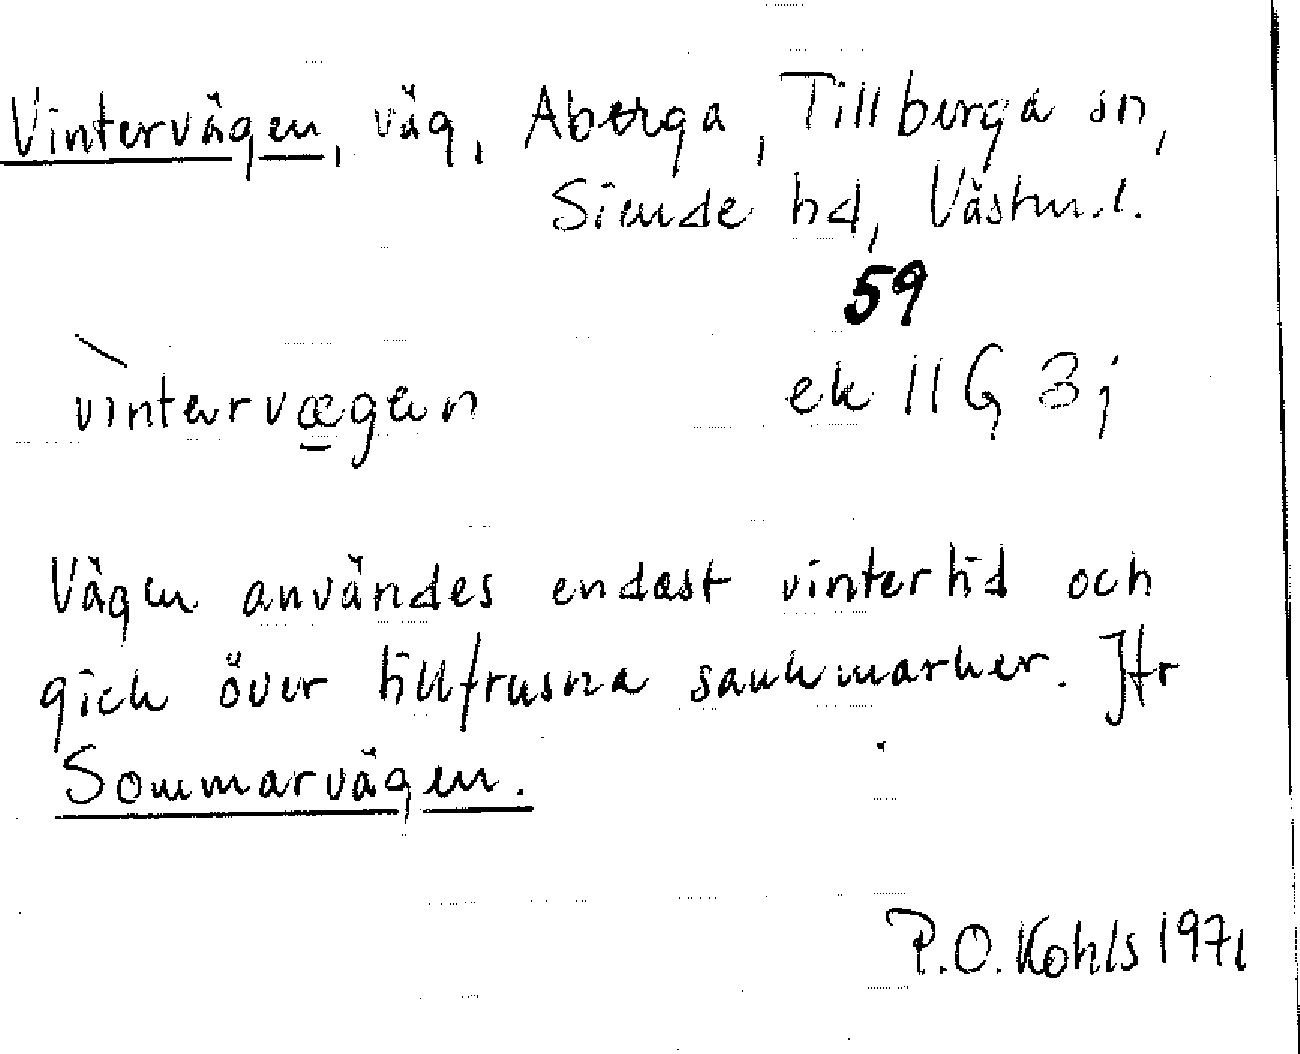 Vintervägen, väg, Aberga, Tillberga sn,
Siende hd, Västm.l.
59
vìntərvægən ek 11G 3j
Vägen användes endast vintertid och
gick över tillfrusna sankmarker. Jfr
Sommarvägen.
P.O. Kohls 1971